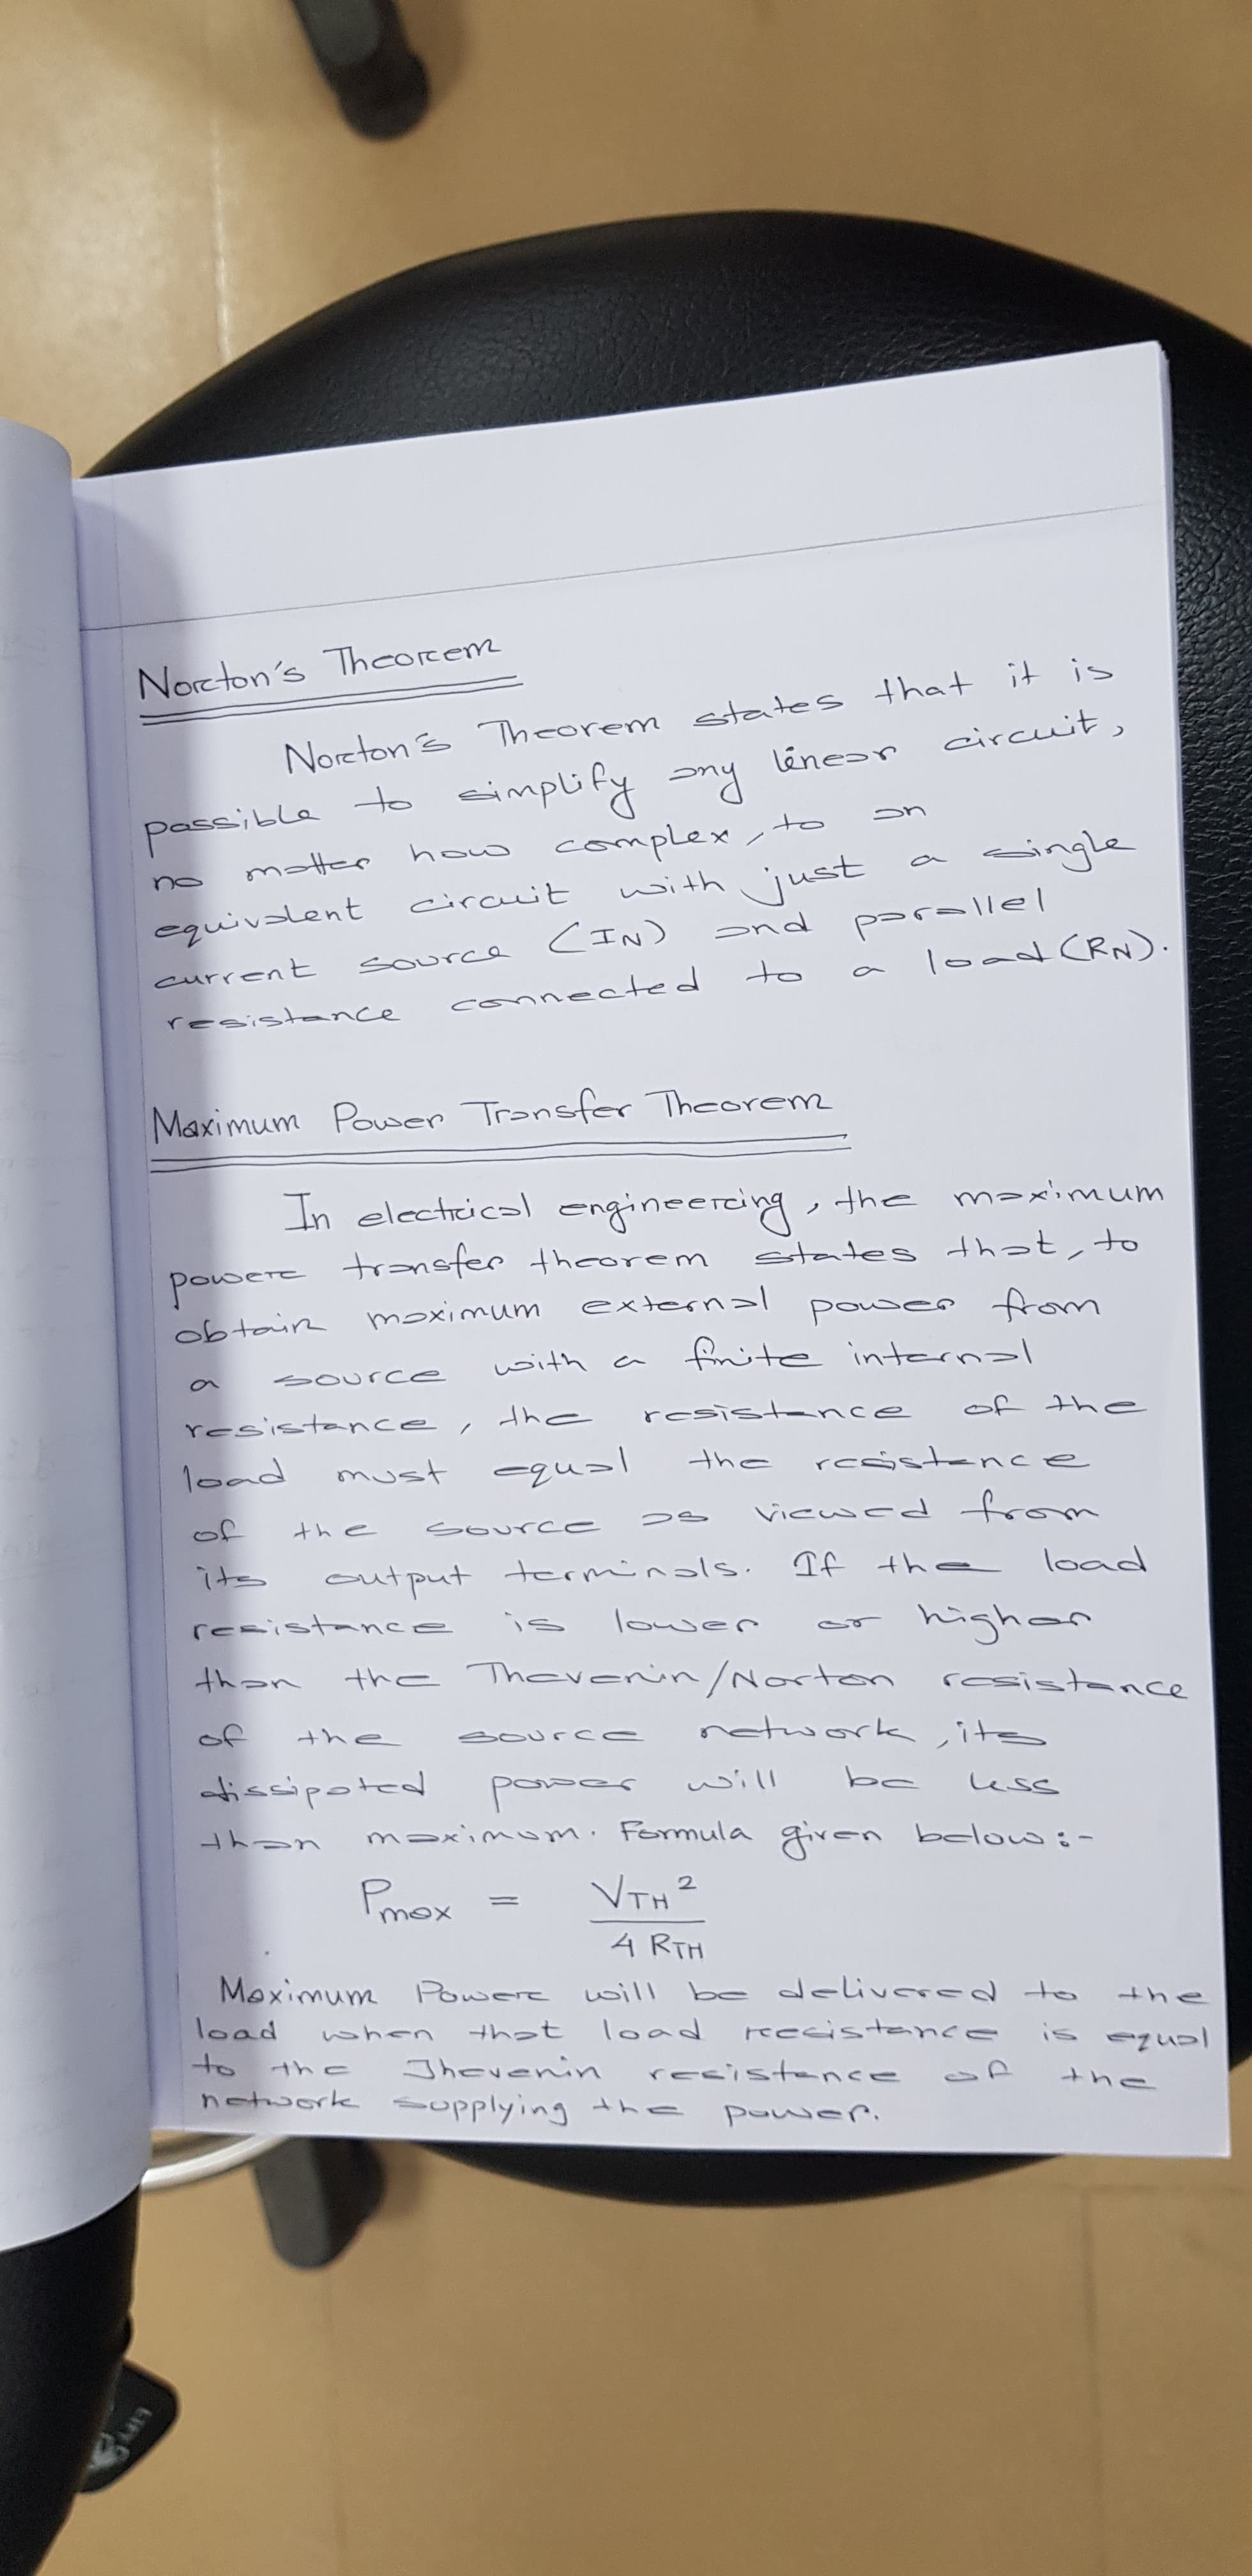 Norton's Theorem
Norton's Theorem states that it is
possible to simplify any linear circuit,
no matter how complex, to an
equivalent circuit with just a single
current source (IN) and parallel
resistance connected to a load (RN).
Maximum Power Transfer Theorem
In electrical engineering, the maximum
power transfer theorem states that, to
obtain maximum external power from
a source with a finite internal
resistance, the resistance of the
load must equal the resistance
of the source as viewed from
its output terminals. If the load
resistance is lower or higher
than the Thevenin/Norton resistance
of the source network, its
dissipated power will be less
than maximum. Formula given below:-
Pmax = VTH² / 4 RTH
Maximum Power will be delivered to the
load when that load resistance is equal
to the Thevenin resistance of the
network supplying the power.